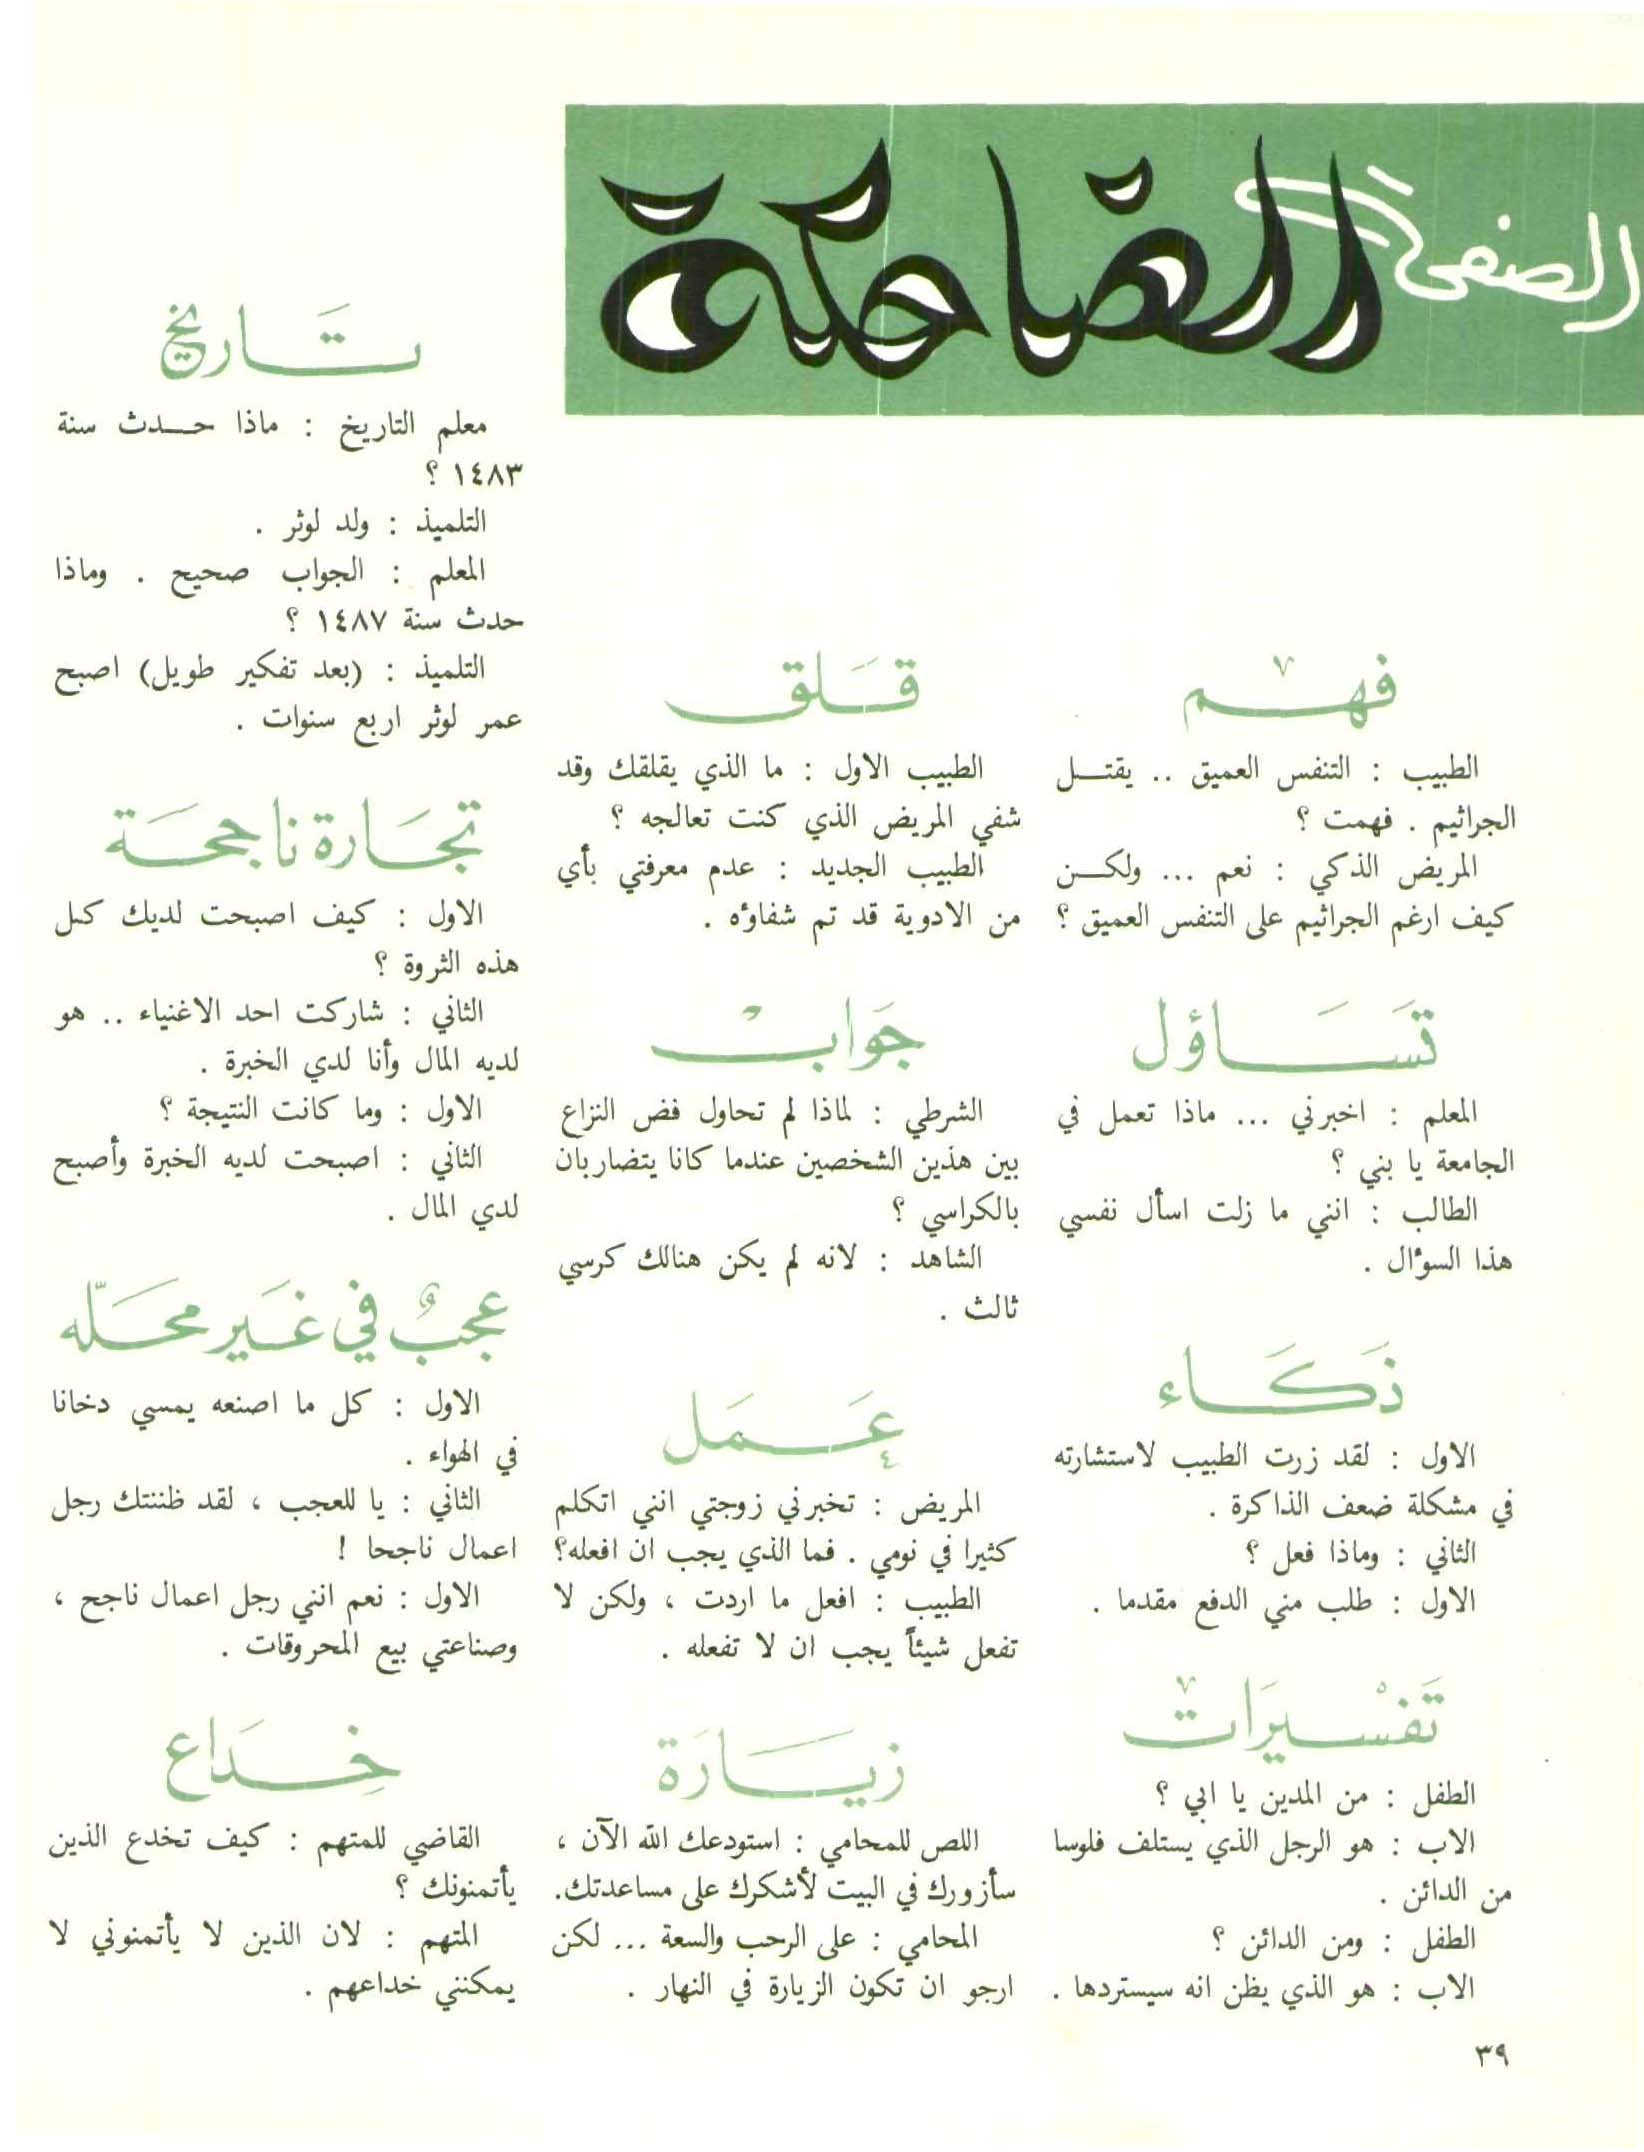 الصفحة الضاحكة
فهم
الطبيب : التنفس العميق .. يقتل
الجراثيم . فهمت ؟
المريض الذكي : نعم ... ولكن
كيف ارغم الجراثيم على التنفس العميق ؟
تساؤل
المعلم : اخبرني ... ماذا تعمل في
الجامعة يا بني ؟
الطالب : انني ما زلت اسأل نفسي
هذا السؤال .
ذكاء
الاول : لقد زرت الطبيب لاستشارته
في مشكلة ضعف الذاكرة .
الثاني : وماذا فعل ؟
الاول : طلب مني الدفع مقدما .
تفسيرات
الطفل : من المدين يا ابي ؟
الاب : هو الرجل الذي يستلف فلوسا
من الدائن .
الطفل : ومن الدائن ؟
الاب : هو الذي يظن انه سيستردها .
قلق
الطبيب الاول : ما الذي يقلقك وقد
شفي المريض الذي كنت تعالجه ؟
الطبيب الجديد : عدم معرفتي بأي
من الادوية قد تم شفاؤه .
جواب
الشرطي : لماذا لم تحاول فض النزاع
بين هذين الشخصين عندما كانا يتضاربان
بالكراسي ؟
الشاهد : لانه لم يكن هنالك كرسي
ثالث .
عمل
المريض : تخبرني زوجتي انني اتكلم
كثيرا في نومي . فما الذي يجب ان افعله؟
الطبيب : افعل ما اردت ، ولكن لا
تفعل شيئاً يجب ان لا تفعله .
زيارة
اللص للمحامي : استودعك الله الآن ،
سأزورك في البيت لأشكرك على مساعدتك.
المحامي : على الرحب والسعة ... لكن
ارجو ان تكون الزيارة في النهار .
تاريخ
معلم التاريخ : ماذا حدث سنة
١٤٨٣ ؟
التلميذ : ولد لوثر .
المعلم : الجواب صحيح . وماذا
حدث سنة ١٤٨٧ ؟
التلميذ : (بعد تفكير طويل) اصبح
عمر لوثر اربع سنوات .
تجارة ناجحة
الاول : كيف اصبحت لديك كل
هذه الثروة ؟
الثاني : شاركت احد الاغنياء .. هو
لديه المال وأنا لدي الخبرة .
الاول : وما كانت النتيجة ؟
الثاني : اصبحت لديه الخبرة وأصبح
لدي المال .
عجب في غير محله
الاول : كل ما اصنعه يمسي دخانا
في الهواء .
الثاني : يا للعجب ، لقد ظننتك رجل
اعمال ناجحا !
الاول : نعم انني رجل اعمال ناجح ،
وصناعتي بيع المحروقات .
خداع
القاضي للمتهم : كيف تخدع الذين
يأتمنونك ؟
المتهم : لان الذين لا يأتمنوني لا
يمكنني خداعهم .
٣٩